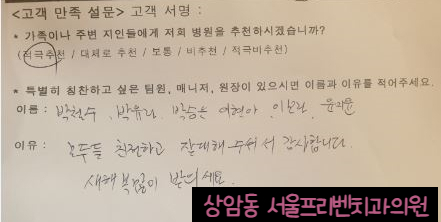 <고객 만족 설문> 고객 서명 :
* 가족이나 주변 지인들에게 저희 병원을 추천하시겠습니까?
(적극추천 / 대체로 추천 / 보통 / 비추천 / 적극비추천)
* 특별히 칭찬하고 싶은 팀원, 매니저, 원장이 있으시면 이름과 이유를 적어주세요.
이름 : 박철수, 박유라, 박승는 여현아
이유 : 모두들 친절하고 잘대해 주셔서 감사합니다.
새해 복많이 받으세요.
상암동 서울프라벤치과의원